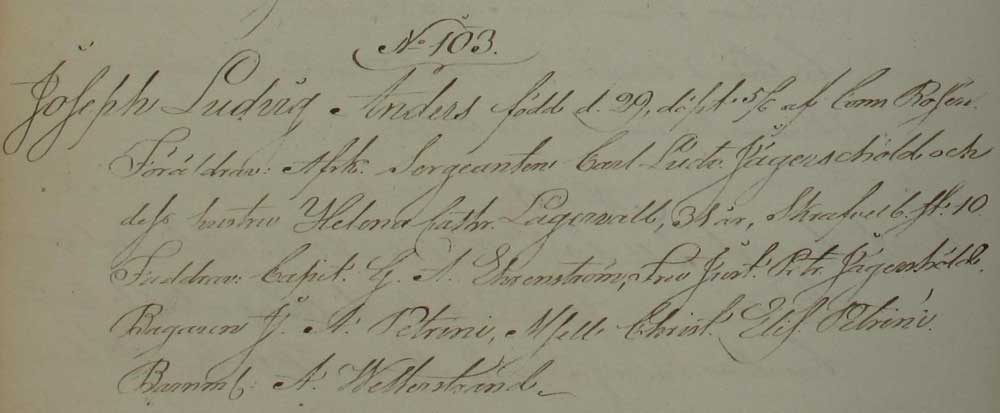 No 103.
Joseph Ludvig Anders född d. 29, döpt 5/6 af Com Rosén.
Föräldrar: Afsk. Sergeanten Carl Ludv. Jägerschöld och
dess hustru Helena Cathr. Lagerwall, 38 år, 6. 10.
Faddrar: Capit. G. A. Ehrenström, Fru Just. Petr. Jägerschöld.
Bagaren J. A. Petrini, Mselle Christ. Elis. Petrini.
Barnm: A. Wetterstrand.